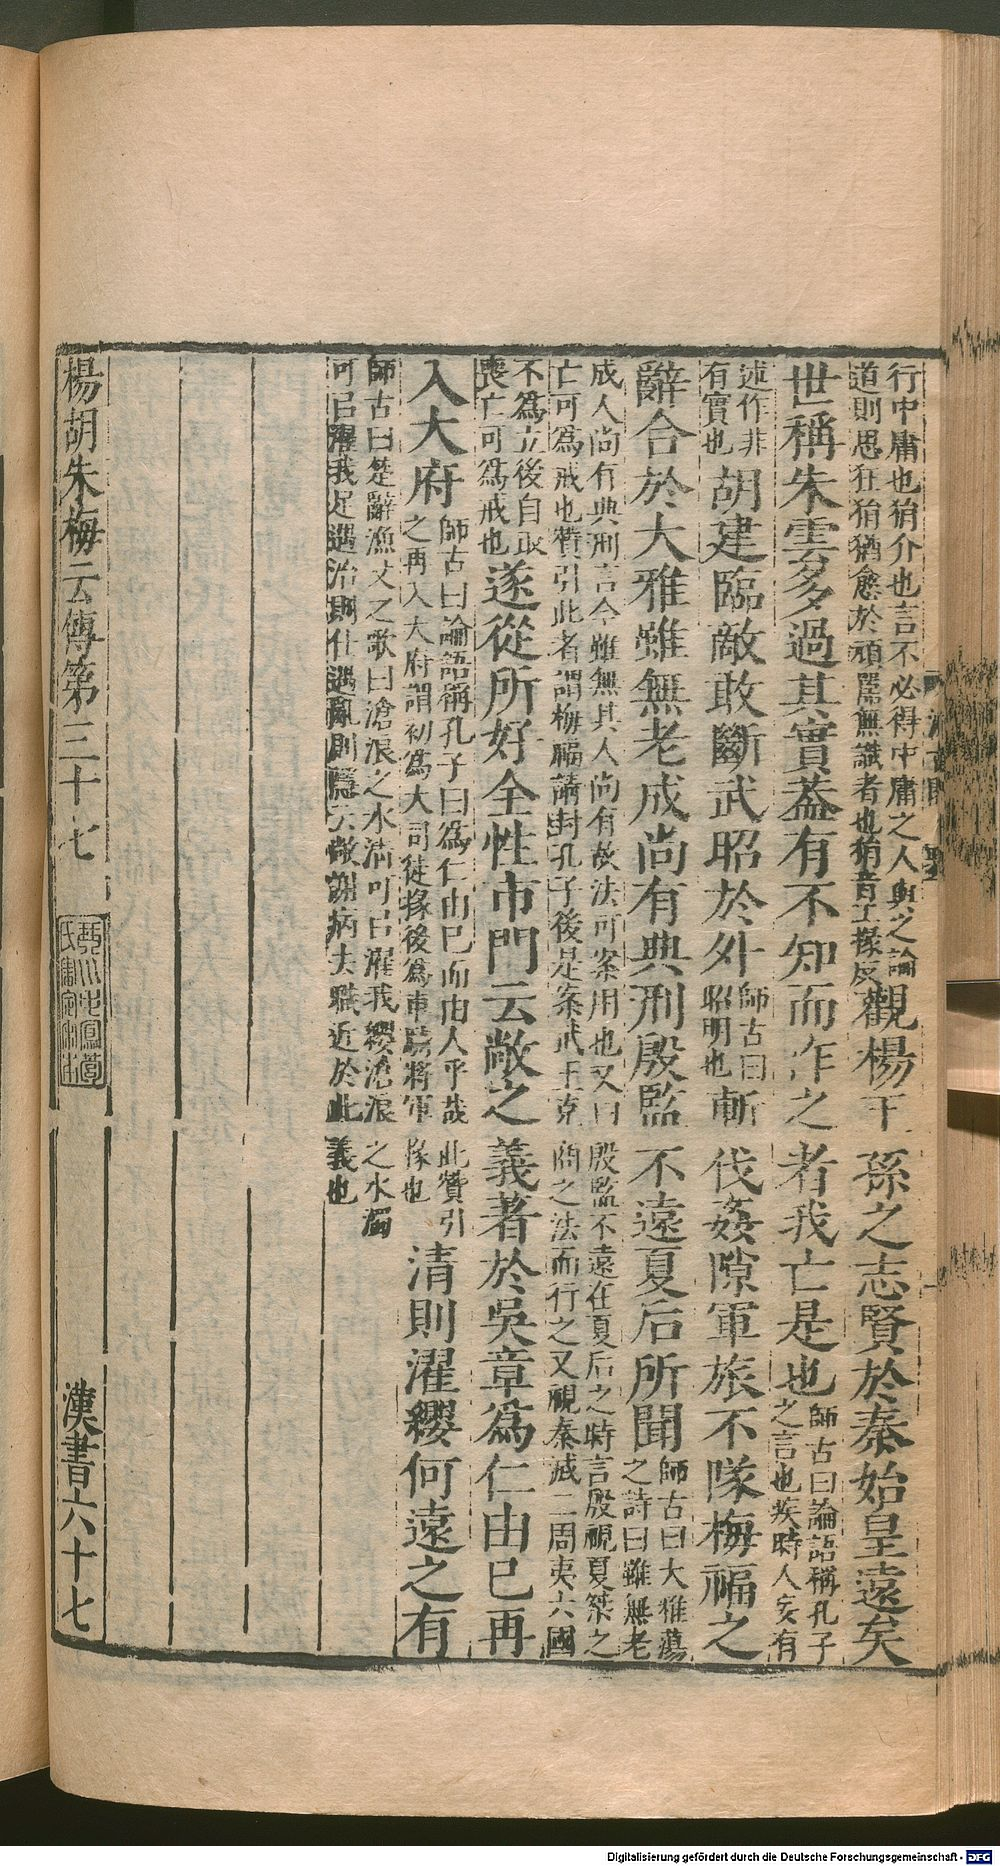 行中庸也狷介也言不必得中庸之人與之論
道則思狂狷猶愈於頑嚚無識者也狷音工掾反
觀楊王孫之志賢於秦始皇遠矣
世稱朱雲多過其實蓋有不知而作之者我亡是也
師古曰論語稱孔子
之言也疾時人妄有
述作非
有實也
胡建臨敵敢斷武昭於外
師古曰
昭明也
斬伐姦隙軍旅不隊梅福之
辭合於大雅雖無老成尚有典刑殷監不遠夏后所聞
師古曰大雅蕩
之詩曰雖無老
成人尚有典刑言今雖無其人尚有故法可案用也又曰殷監不遠在夏后之時言殷視夏桀之
亡可為戒也贊引此者謂梅福請封孔子後是案武王克商之法而行之又視秦滅二周夷六國
不為立後自取
喪亡可為戒也
遂從所好全性市門云敞之義著於吳章為仁由已再
入大府
師古曰論語稱孔子曰為仁由已而由人乎哉此贊引
之再入大府謂初為大司徒掾後為車騎將軍掾也
清則濯纓何遠之有
師古曰楚辭漁父之歌曰滄浪之水清可已濯我纓滄浪之水濁
可已濯我足遇治則仕遇亂則隱云敞謝病去職近於此義也
楊胡朱梅云傳第三十七
漢書六十七
Digitalisierung gefördert durch die Deutsche Forschungsgemeinschaft - DFG